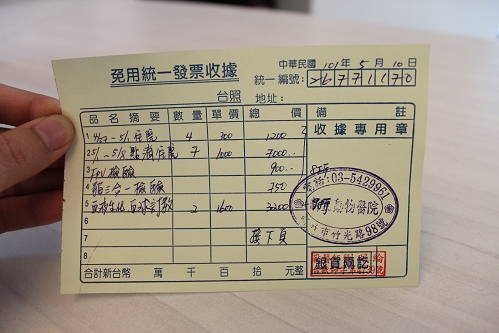 免用統一發票收據
中華民國 101年 5月 10日
統一編號: 26771170
台照 地址:
品名 摘要 數量 單價 總價 備 註
1 4/27~5/1 住院 4 300 1200
收據專用章
2 5/1~5/8 點滴住院 7 1000 7000
3 FPV檢驗 900
4 三合一檢驗 750
5 血球 2 1600 3200
6
7 接下頁
8
電話:03-5429961
動物醫院
竹市竹光路98號
合計新台幣 萬 千 百 拾 元整
銀貨兩訖